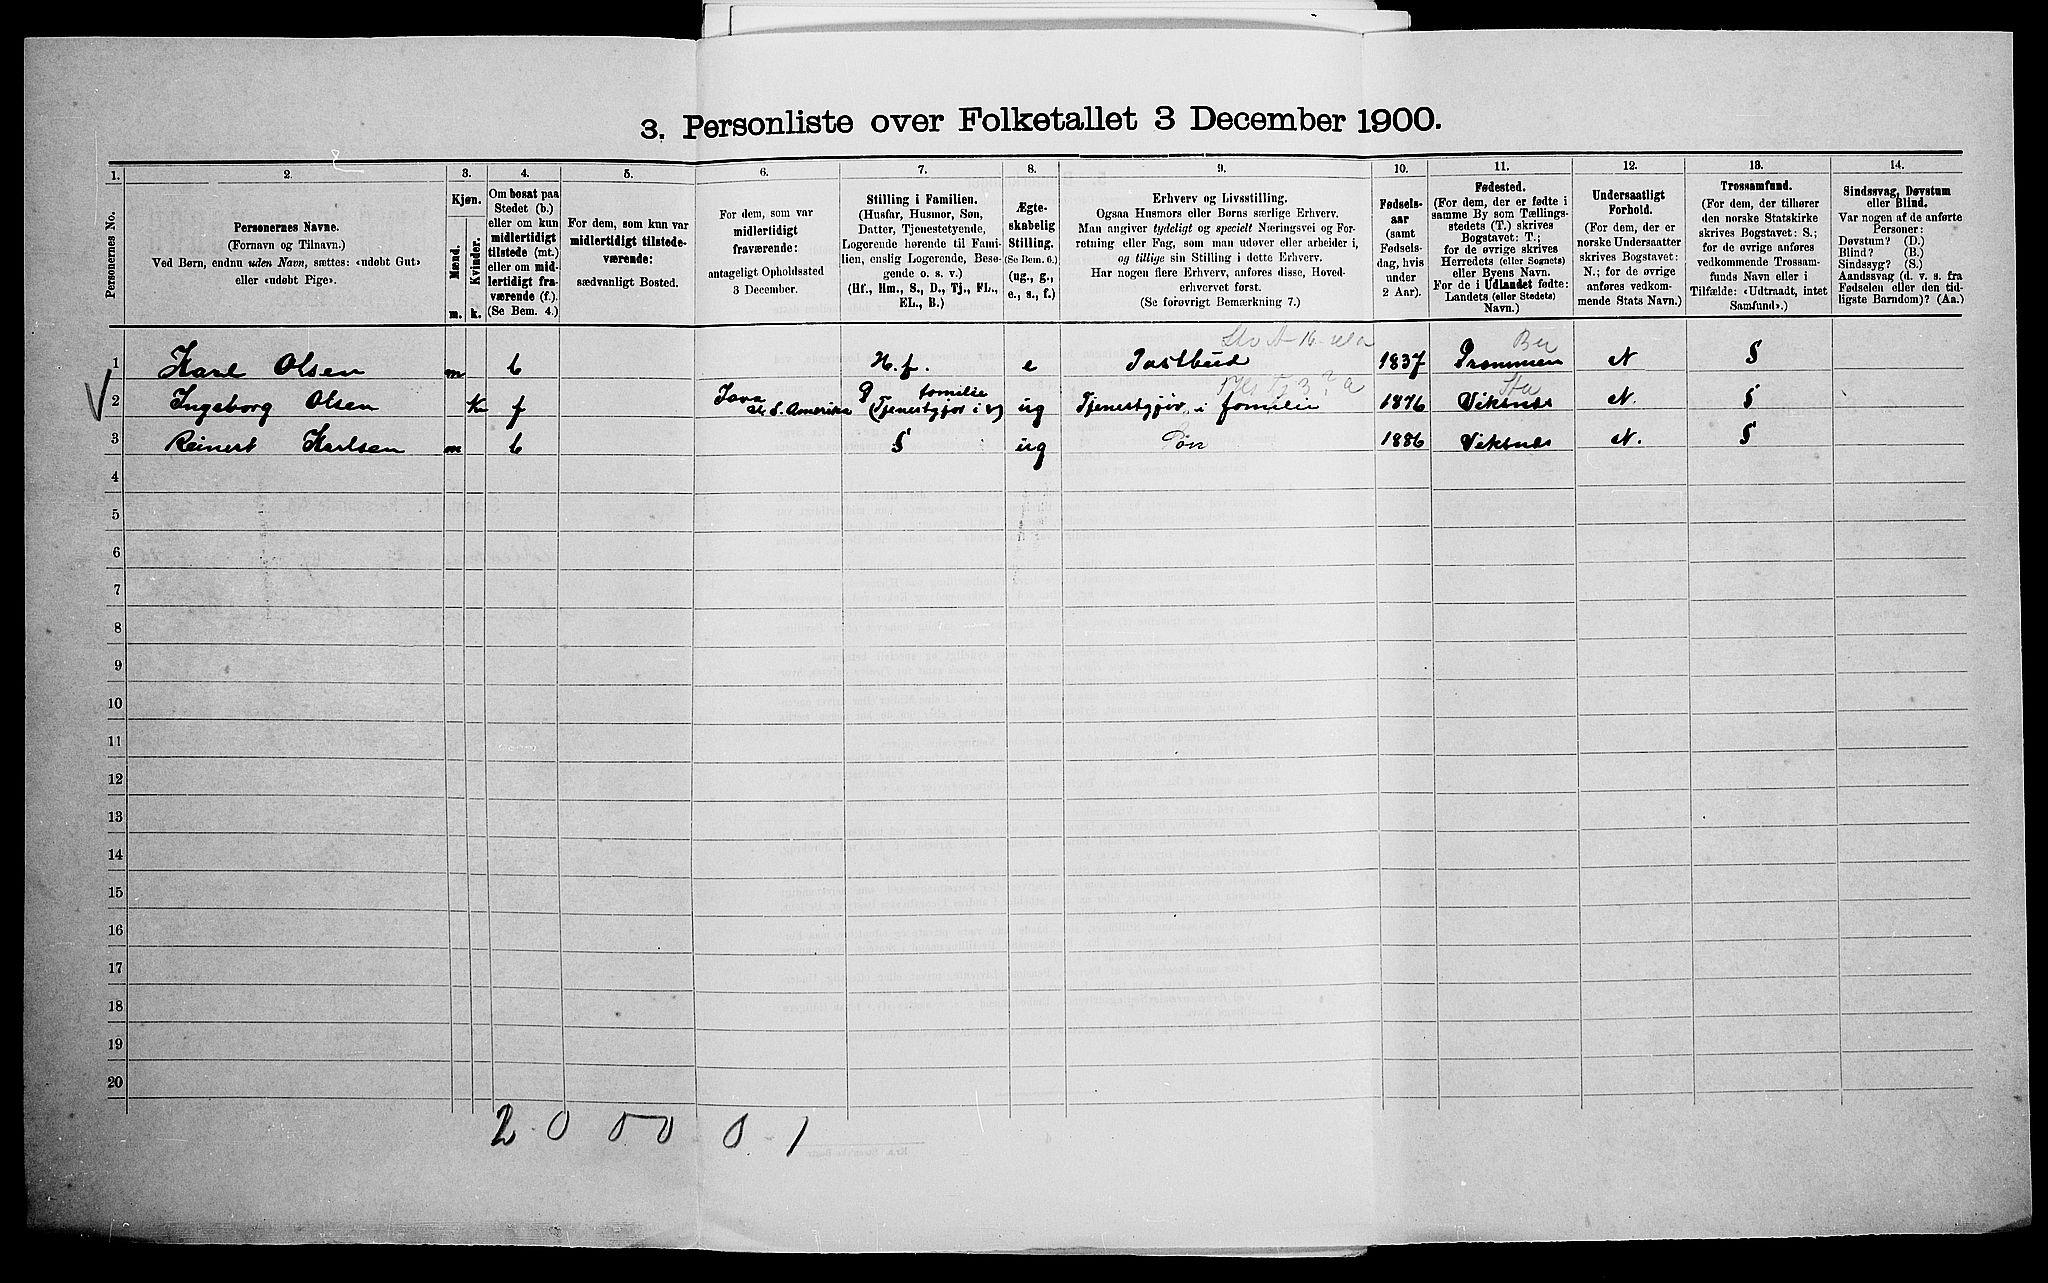 3. Personliste over Folketallet 3 December 1900.
1. 2. 3. 4. 5. 6. 7. 8. 9. 10. 11. 12. 13. 14.
Personernes No.
Personernes Navne.
(Fornavn og Tilnavn.)
Ved Børn, endnu uden Navn, sættes: «udøbt Gut»
eller «udøbt Pige».
Kjøn.
Mænd.
Kvinder.
m. k.
Om bosat paa
Stedet (b.)
eller om kun
midlertidigt
tilstede (mt.)
eller om mid-
lertidigt fra-
værende (f.).
(Se Bem. 4.)
For dem, som kun var
midlertidigt tilstede-
værende:
sædvanligt Bosted.
For dem, som var
midlertidigt
fraværende:
antageligt Opholdssted
3 December.
Stilling i Familien.
(Husfar, Husmor, Søn,
Datter, Tjenestetyende,
Logerende hørende til Fami-
lien, enslig Logerende, Besø-
gende o. s. v.)
(Hf., Hm., S., D., Tj., FL.,
EL., B.)
Ægte-
skabelig
Stilling.
(Se Bem. 6.)
(ug., g.,
e., s., f.)
Erhverv og Livsstilling.
Ogsaa Husmors eller Børns særlige Erhverv.
Man angiver tydeligt og specielt Næringsvei og For-
retning eller Fag, som man udøver eller arbeider i,
og tillige sin Stilling i dette Erhverv.
Har nogen flere Erhverv, anføres disse, Hoved-
erhvervet først.
(Se forøvrigt Bemærkning 7.)
Fødsels-
aar
(samt
Fødsels-
dag, hvis
under
2 Aar).
Fødested.
(For dem, der er fødte i
samme By som Tællings-
stedets (T.) skrives
Bogstavet: T.;
for de øvrige skrives
Herredets (eller Sognets)
eller Byens Navn.
For de i Udlandet fødte:
Landets (eller Stedets)
Navn.)
Undersaatligt
Forhold.
(For dem, der er
norske Undersaatter
skrives Bogstavet:
N.; for de øvrige
anføres vedkom-
mende Stats Navn.)
Trossamfund.
(For dem, der tilhører
den norske Statskirke
skrives Bogstavet: S.;
for de øvrige anføres
vedkommende Trossam-
funds Navn eller i
Tilfælde: «Udtraadt, intet
Samfund».)
Sindssvag, Døvstum
eller Blind.
Var nogen af de anførte
Personer:
Døvstum? (D.)
Blind? (B.)
Sindssyg? (S.)
Aandssvag (d. v. s. fra
Fødselen eller den tid-
ligste Barndom)? (Aa.)
1 Karl Olsen m b H.f. e Postbud 1837 N S
2 Ingeborg Olsen K f S. Amerika familie (Tjenestgjør i ug Tjenestgjør i familie 1876 Viksnes N. S
3 Reinert Karlsen m b S ug Søn 1886 Viksnes N. S
4
5
6
7
8
9
10
11
12
13
14
15
16
17
18
19
20
2 0 0 0 0 1